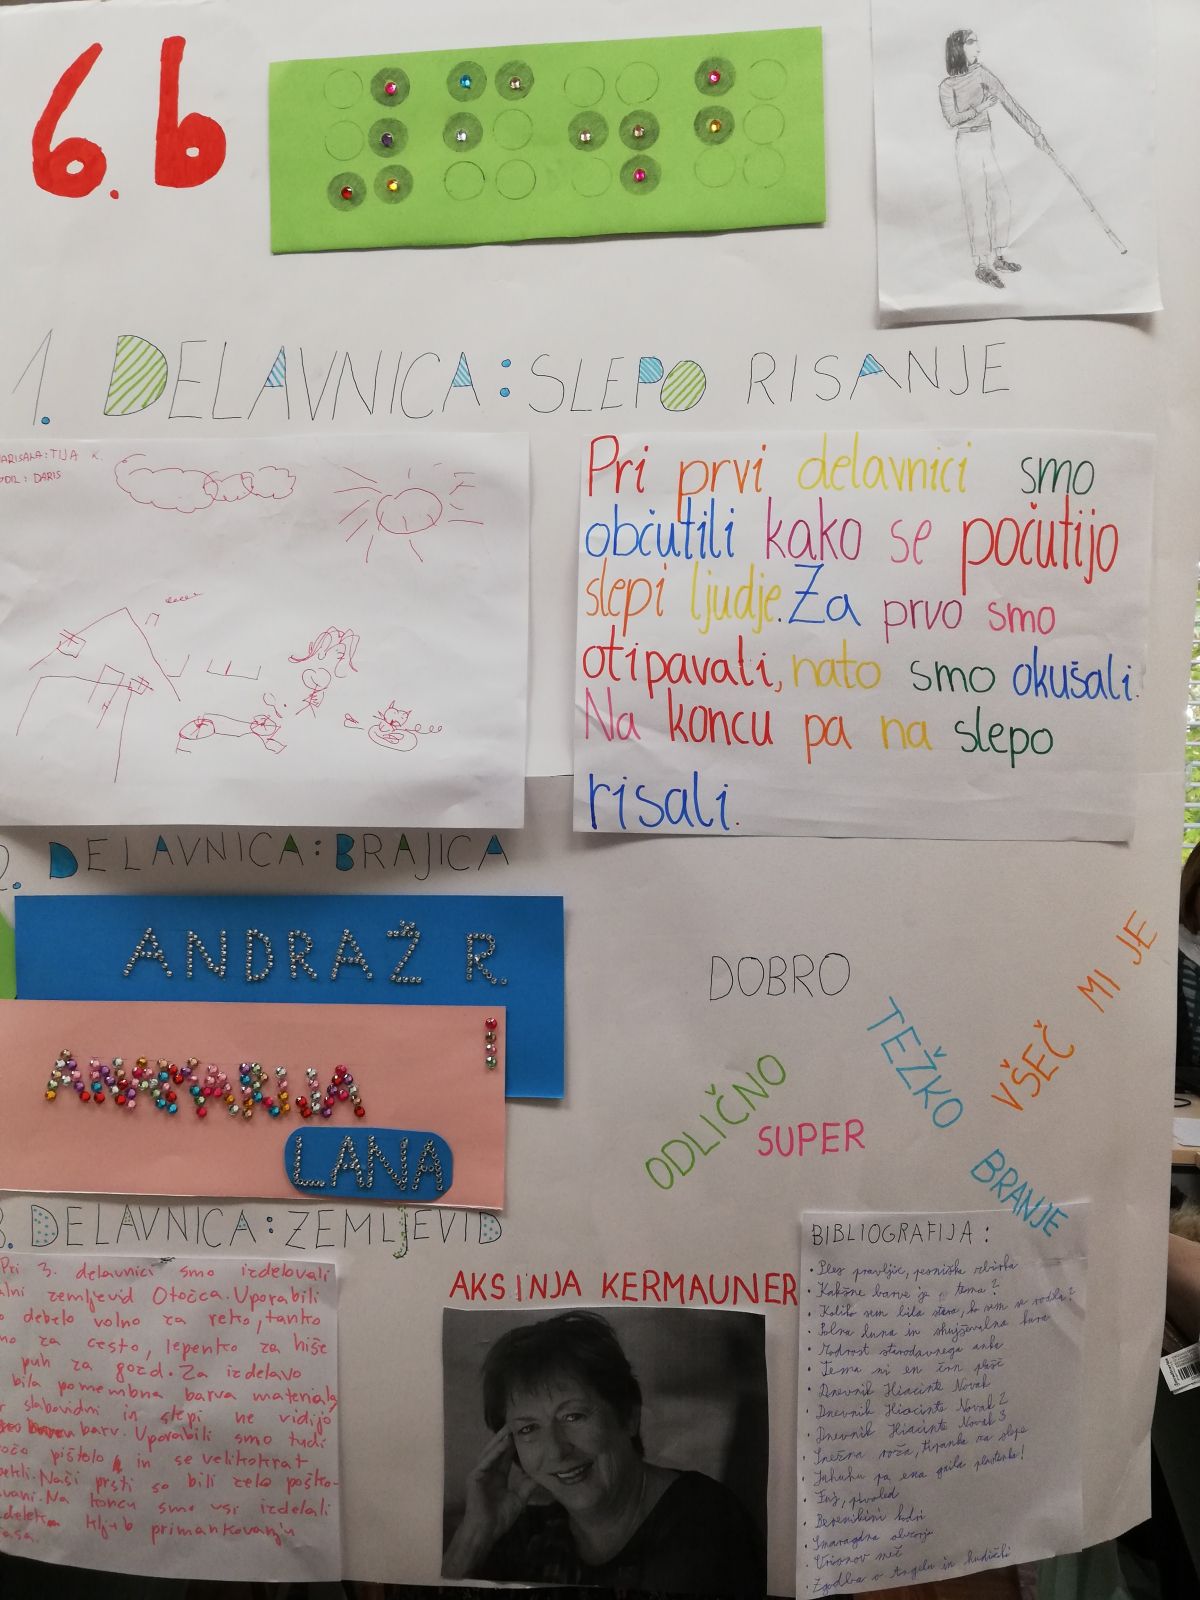 6.b
1. DELAVNICA: SLEPO RISANJE
NARISALA: TIJA K.
VODIL: DARIS
Pri prvi delavnici smo
občutili kako se počutijo
slepi ljudje. Za prvo smo
otipavali, nato smo okušali.
Na koncu pa na slepo
risali.
2. DELAVNICA: BRAJICA
ANDRAŽ R.
ANAMARIJA
LANA
DOBRO
TEŽKO
VŠEČ MI JE
ODLIČNO
SUPER
BRANJE
3. DELAVNICA: ZEMLJEVID
Pri 3. delavnici smo izdelovali
zemljevid Otočca. Uporabili
debelo volno za reko, tanko
za cesto, lepenko za hiše
puh za gozd. Za izdelavo
bila pomembna barva materiala
slabovidni in slepi ne vidijo
barv. Uporabili smo tudi
pištolo in se velikokrat
Naši prsti so bili zelo poško-
Na koncu smo vsi izdelali
kljub primankovanju
AKSINJA KERMAUNER
BIBLIOGRAFIJA:
• Ples pravljic, pesniška zbirka
• Kakšne barve je tema?
• Koliko sem bila stara, ko sem se rodila?
• Polna luna in kura
• Modrost starodavnega anka
• Tema ni en črn plašč
• Dnevnik Hiacinte Novak
• Dnevnik Hiacinte Novak 2
• Dnevnik Hiacinte Novak 3
• Snežna roža, tipanka za slepe
• Juhuhu pa ena gnila plastenka!
• Fuj, pivoled
• Berenikini kodri
• Smaragdna obzorja
• Orionov meč
• Zgodba o Angelu in hudički